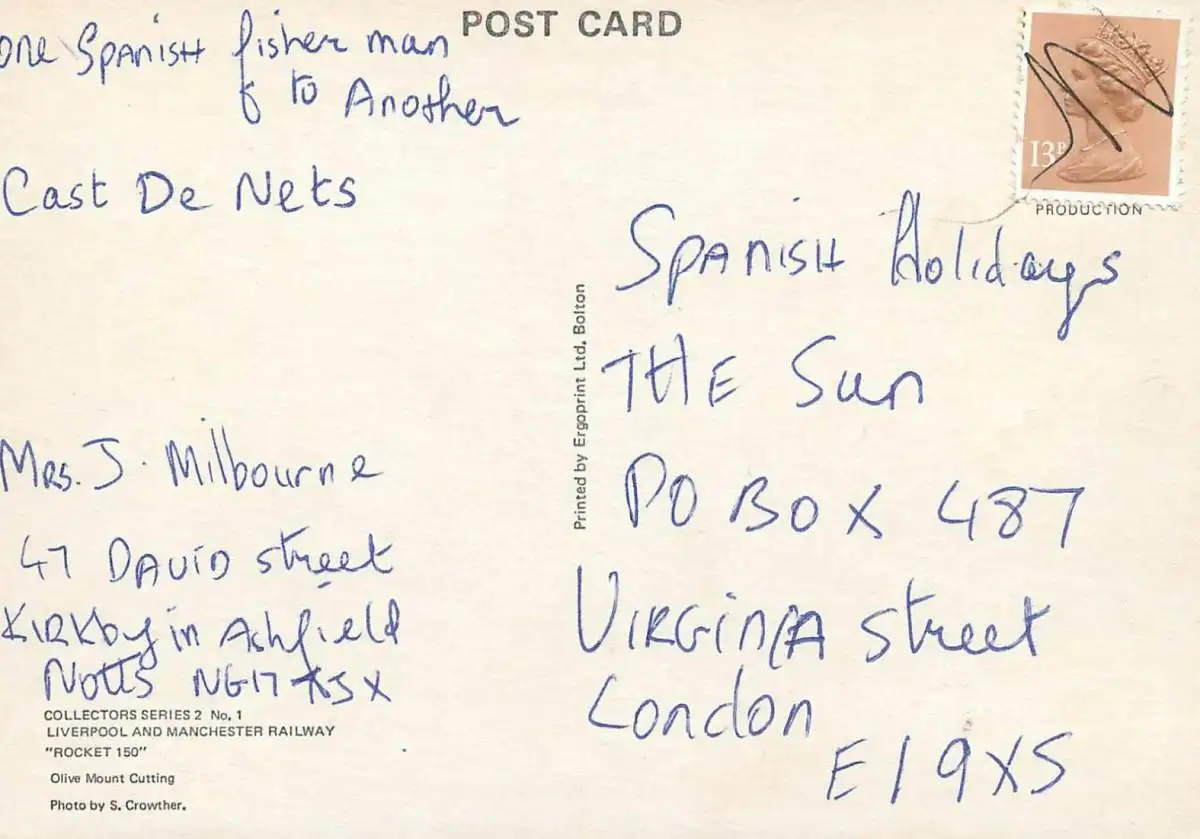 POST CARD
one Spanish fisher man
& to Another
Cast De Nets
13P
PRODUCTION
Spanish Holidays
THE Sun
PO BOX 487
VIRGINIA street
London
E1 9XS
Printed by Ergoprint Ltd. Bolton
Mrs. J. Milbourne
47 DAVID street
KIRKby in Ashfield
Notts NG17
COLLECTORS SERIES 2 No. 1
LIVERPOOL AND MANCHESTER RAILWAY
"ROCKET 150"
Olive Mount Cutting
Photo by S. Crowther.